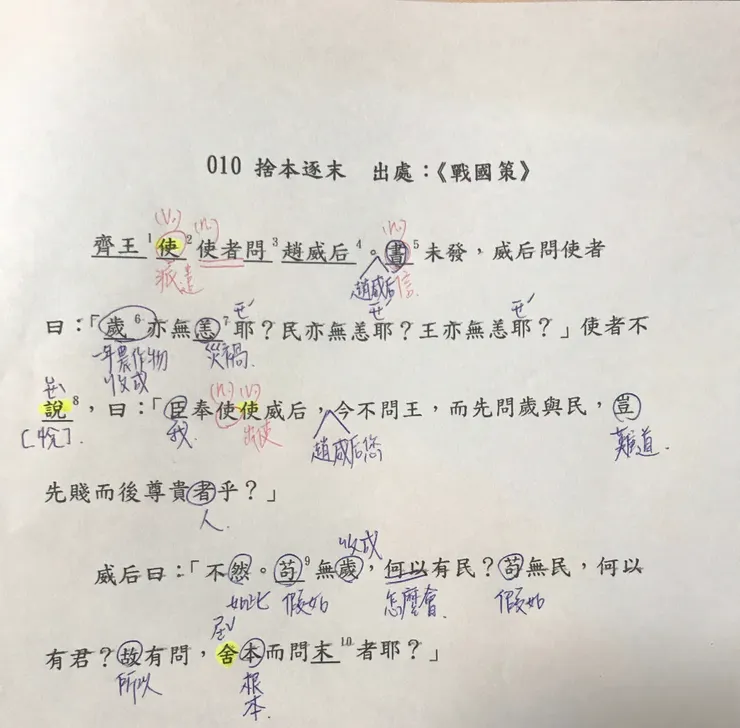 010 捨本逐末 出處：《戰國策》
(v.) (n.) (n.)
齊王¹使²使者問³趙威后⁴。書⁵未發，威后問使者
派遣 趙威后 信
ㄝˊ ㄝˊ ㄝˊ
曰：「歲⁶亦無恙⁷耶？民亦無恙耶？王亦無恙耶？」使者不
一年農作物收成 災禍
說⁸，曰：「臣奉使使威后，今不問王，而先問歲與民，豈
[悅]. 我. (n.) (v.) 出使 趙威后您 難道.
先賤而後尊貴者乎？」
人.
收成
威后曰：「不然。苟⁹無歲，何以有民？苟無民，何以
如此 假如 怎麼會. 假如
有君？故有問，舍本而問末¹⁰者耶？」
所以 根本.